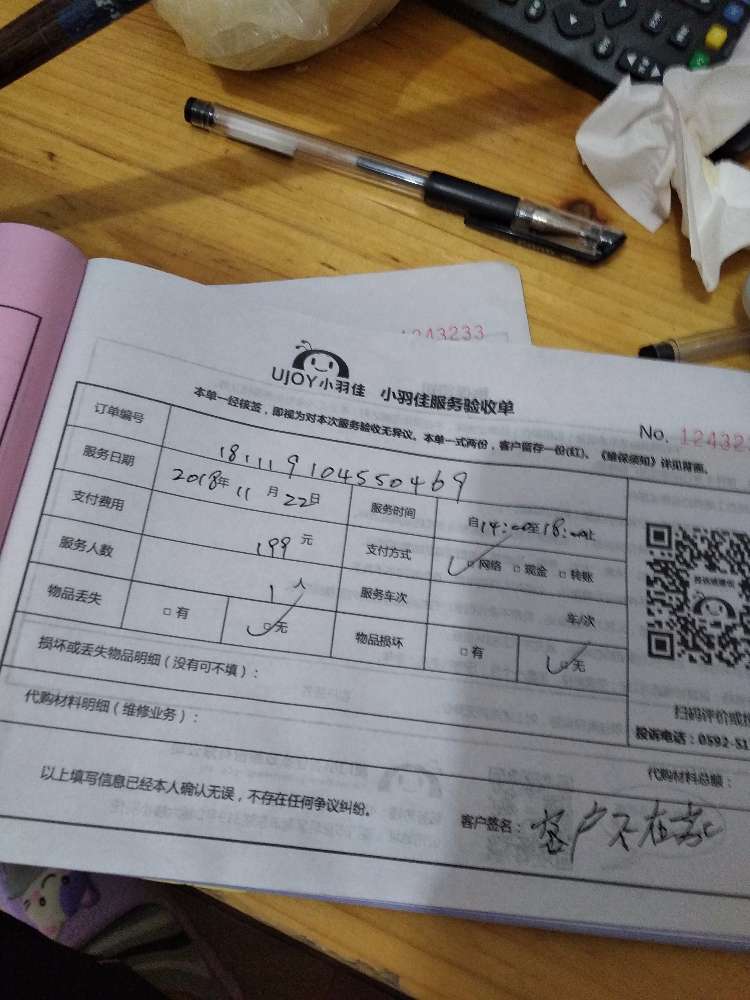 1243233
UJOY小羽佳 小羽佳服务验收单
No. 12432
本单一经核签，即视为对本次服务验收无异议。本单一式两份，客户留存一份(红)、《维保须知》详见背面。
订单编号 181119104550469
服务日期 2018年11月22日 服务时间 自14:00至18:00止
支付费用 199元 支付方式 □网络 □现金 □转账
服务人数 1人 服务车次 车/次
物品丢失 □有 □无 物品损坏 □有 □无
损坏或丢失物品明细（没有可不填）：
扫码评价或投
投诉电话：0592-51
代购材料明细（维修业务）：
代购材料总额：
以上填写信息已经本人确认无误，不存在任何争议纠纷。
客户签名：客户不在家